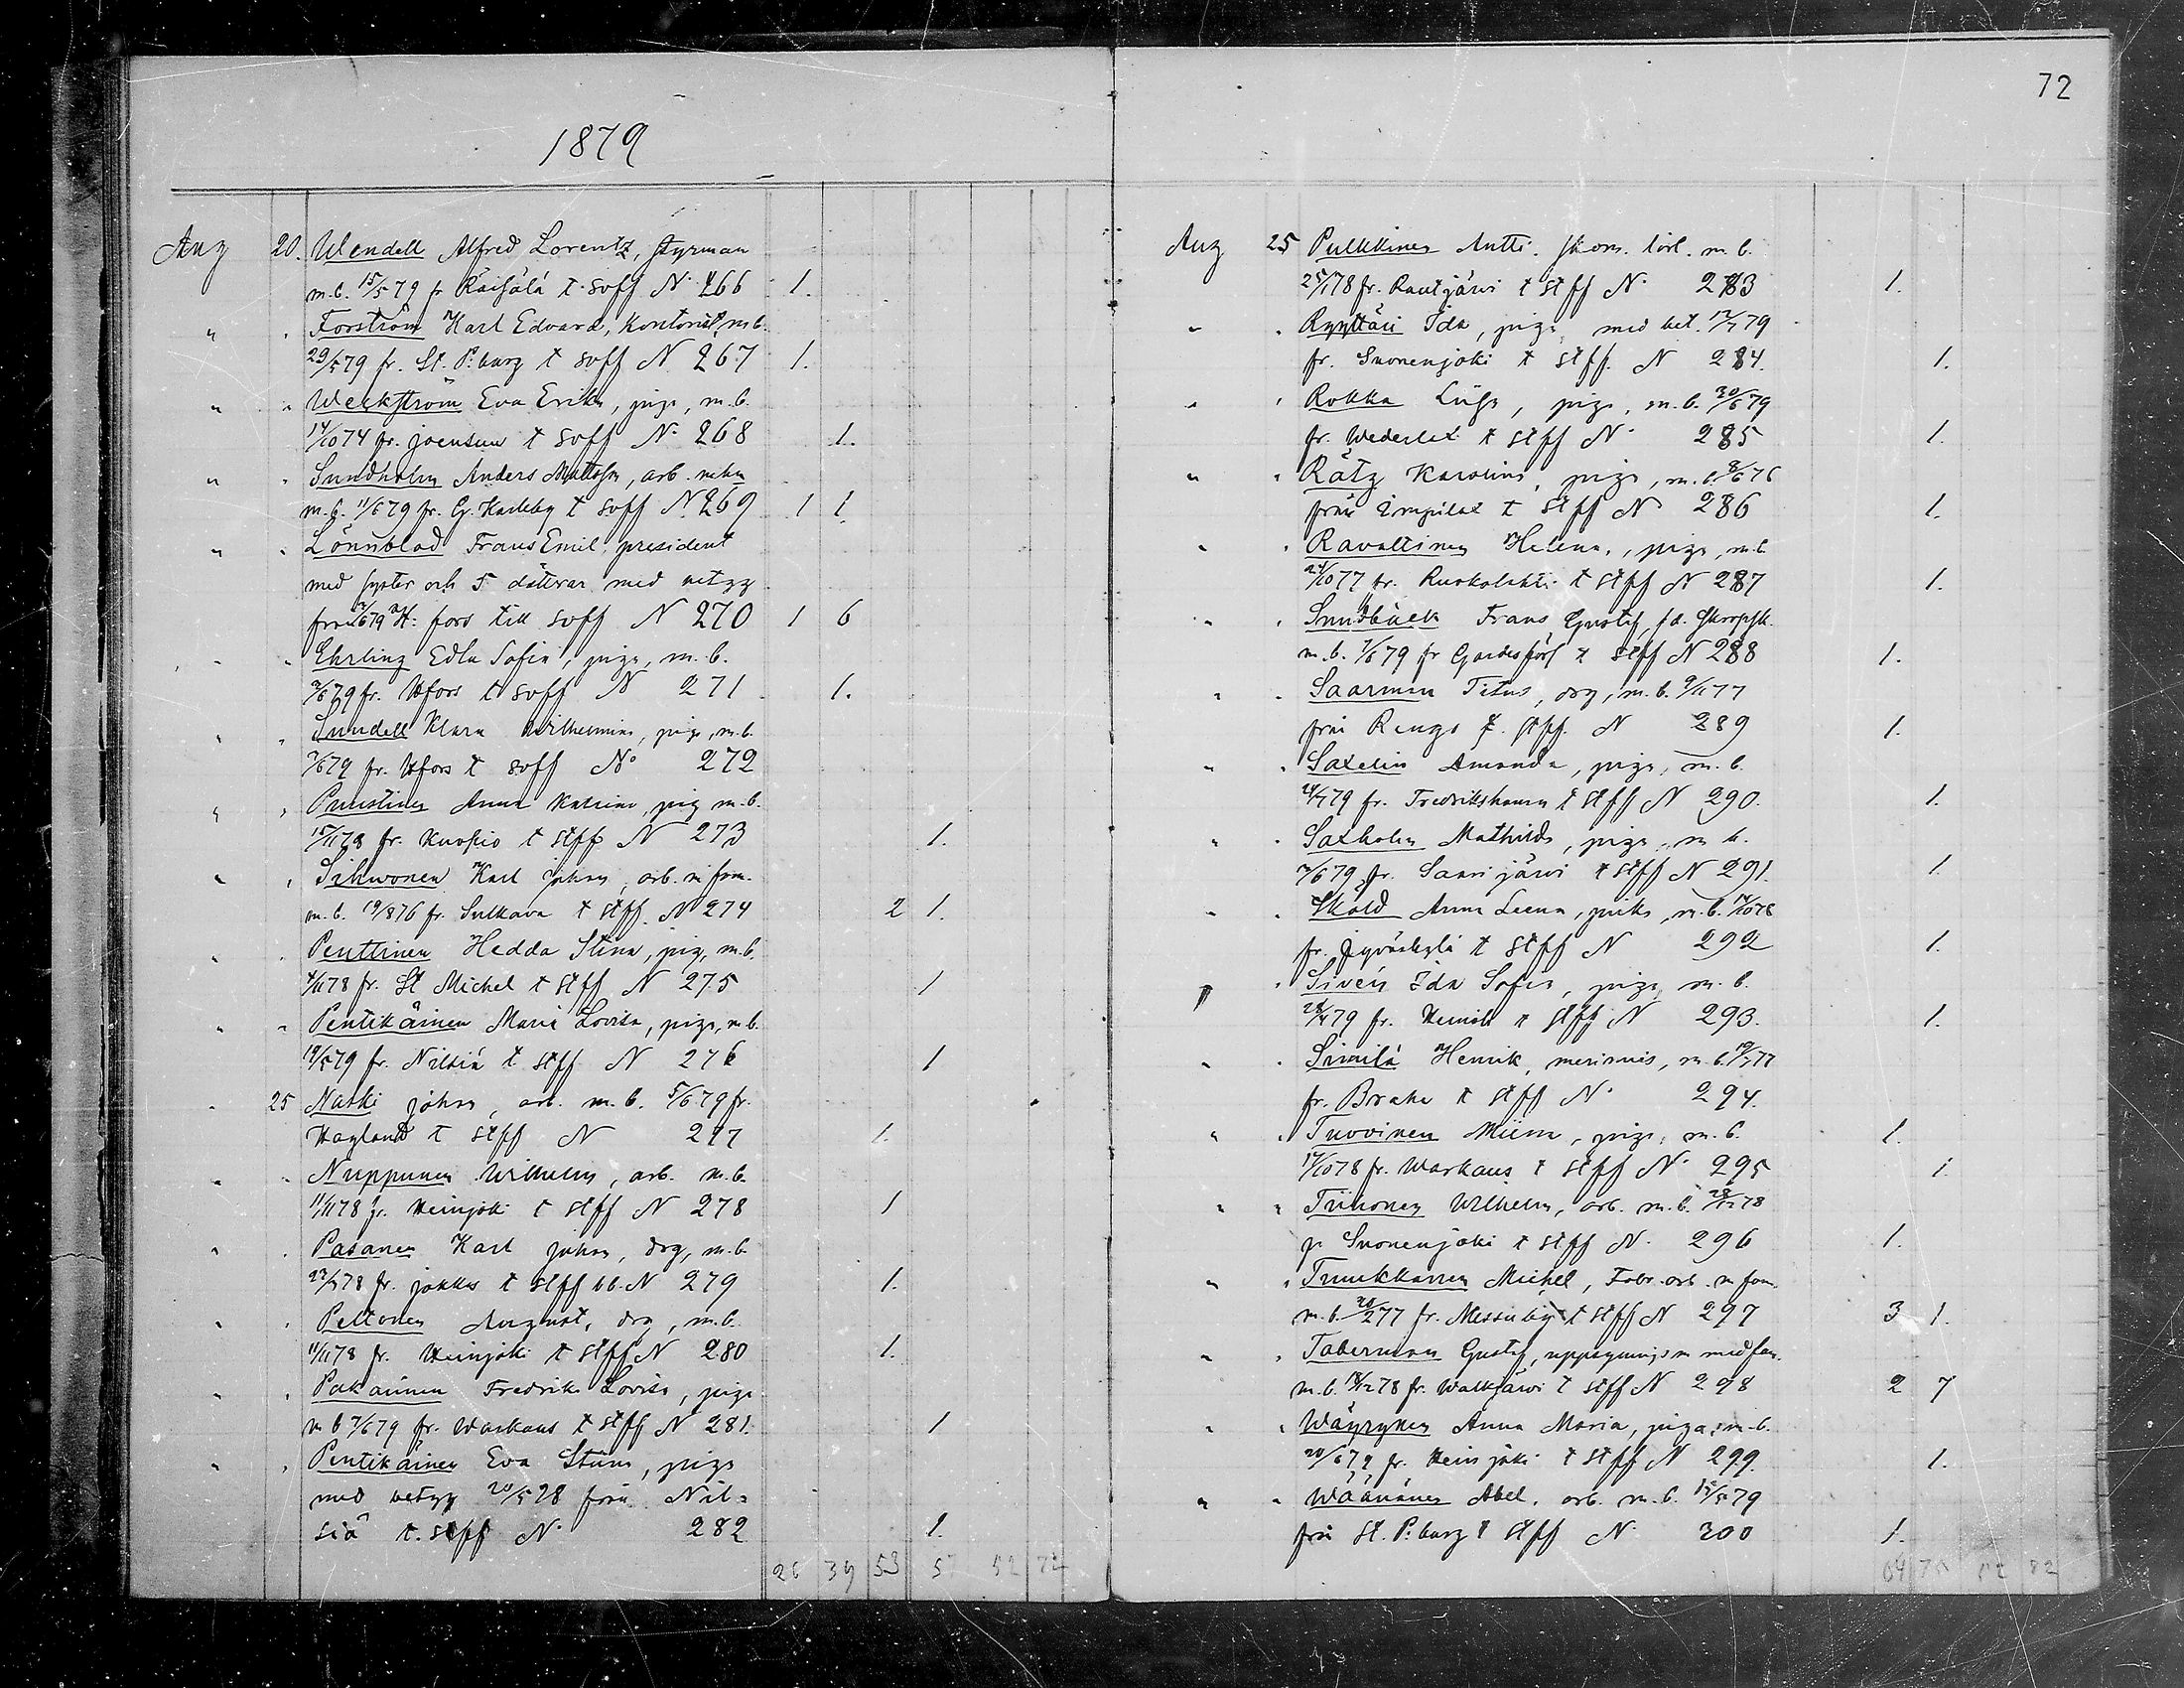 72
1879
Aug 20. Wendell Alfred Lorentz, styrman
m.b. 15/5 79 fr Räisälä t. soff N. 266 1.
" . Forström Karl Edvard, Kontorist, m b.
29/5 79 fr. St. P:burg t soff N 267 1.
" " Weckström Eva Erika, piga, m.b.
14/10 74 fr. joensuu t soff N. 268 1.
" . Sundholm Anders Mattsson, arb.
m.b. 11/6 79 fr. G. Karleby t soff N. 269 1 1.
" . Lönnblad Frans Emil, president
med syster och 5 döttrar med betyg
från H:fors till soff N 270 1 6
" . Ehrling Edla Sofia, piga, m.b.
2/6 79 fr. Hfors t soff N 271 1.
" " Sundell Klara Wilhelmina, piga, m.b.
2/6 79 fr. Hfors t soff No 272
" " Puustinen Anna Katrina, pig m.b.
15/11 78 fr. Kuopio t stff N 273 1.
" . Sihwonen Karl johan, arb. m fam.
m.b. 19/8 76 fr. Sulkava t stff. N 274 2 1.
" . Penttinen Hedda Stina, pig, m.b.
4/11 78 fr. St Michel t stff N 275 1
" " Pentikäinen Maria Lovisa, piga, m.b.
19/5 79 fr. Nilsiä t stff N 276 1
" 25 Naski johan, arb. m.b. 5/6 79 fr.
Hogland t stff N 277 1.
" " Nuppunen Wilhelm, arb. m.b.
11/11 78 fr. Heinjoki t stff N 278 1
" . Pasanen Karl johan, drg, m.b.
23/7 78 fr. jokkas t stff bb. N 279 1.
" . Peltonen August, drg, m.b.
11/11 78 fr. Heinjoki t stff N 280 1.
" . Pakarinen Fredrika Lovisa, piga
m b 7/6 79 fr. Warkaus t stff N 281. 1
" . Pentikäinen Eva Stina, piga
med betyg 20/5 78 från Nil=
siä t. stff N. 282 1.
26 39 53 57 52 72
Aug 25 Pulkkinen Antti. m.b.
25/1 78 fr. Rautjärvi t stff N. 283 1.
" . Ryyttäri Ida, piga, med bet. 12/7 79
fr. Suonenjoki t stff. N 284. 1.
" . Rokka Liisa, piga, m.b. 30/6 79
fr. Wederlax t stff N. 285 1.
" . Rätz Karolina, piga, m.b. 8/6 76
från Impilax t stff N 286 1.
" . Ravattinen Helena, piga, m.b.
24/10 77 fr. Ruokolahti t stff N 287 1.
" . Sundbäck Frans Gustaf, fd.
m.b. 7/6 79 fr Gardesförs t stff N 288 1.
" . Saarinen Titus, drg, m.b. 9/11 77
från Rengo t. stff. N 289 1.
" . Saxelin Amanda, piga, m.b.
24/7 79 fr. Fredrikshamn t stff N 290. 1.
" . Saxholm Mathilda, piga, m b.
2/6 79, fr. Saarijärvi t stff N 291. 1.
" . Sköld Anna Leena, piika, m.b. 14/10 78
fr. jyväskylä t stff N 292 1.
" Sivén Ida Sofia, piga, m.b.
28/4 79 fr. Heinola t stff N 293. 1.
" . Simila Henrik, merimies, m.b. 19/5 77
fr. Brahe t stff N. 294. 1.
" . Tuovinen Miina, piga, m.b.
17/10 78 fr. Warkaus t stff N. 295 1.
" " Tiihonen Wilhelm, arb. m.b. 28/12 78
fr Suonenjoki t stff N. 296 1.
" " Tuukkanen Michel, Fabr. arb. m fam.
m.b. 20/2 77 fr. Messuby t stff N 297 3 1.
" . Taberman Gustaf, uppsyningsm med fam.
m.b. 18/12 78 fr. Walkjärvi t stff N 298 2 7
" . Wäyrynen Anna Maria, piga, m.b.
20/6 79 fr. Heinjoki t stff N 299. 1.
" " Wäänänen Abel, arb. m.b. 15/5 79
från St. P:burg t stff N. 300 1.
64 70 52 82